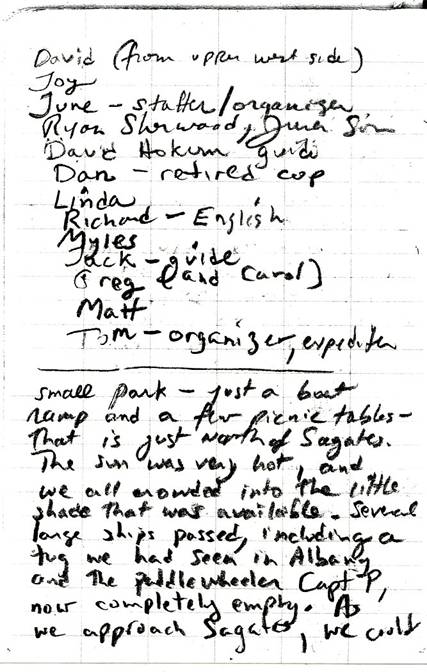 David (from upper west side)
Joy
June - staffer/organizer
Ryan Sherwood, June's Son
David Hokum guide
Dan - retired cop
Linda
Richard - English
Myles
Jack - guide
Greg (and Carol)
Matt
Tom - organizer, expediter
small park - just a boat
ramp and a few picnic tables -
that is just north of Sagates.
The sun was very hot, and
we all crowded into the little
shade that was available. Several
large ships passed, including a
tug we had seen in Albany
and the paddlewheeler Capt P,
now completely empty. As
we approach Sagates, we could